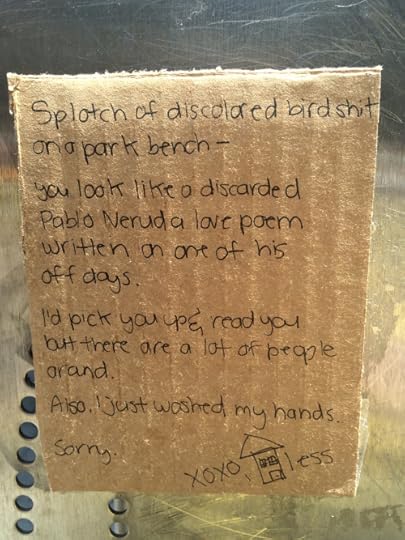 Splotch of discolored bird shit
on a park bench-
you look like a discarded
Pablo Neruda love poem
written on one of his
off days.
I'd pick you up & read you
but there are a lot of people
around.
Also, I just washed my hands.
Sorry.
xoxo, less